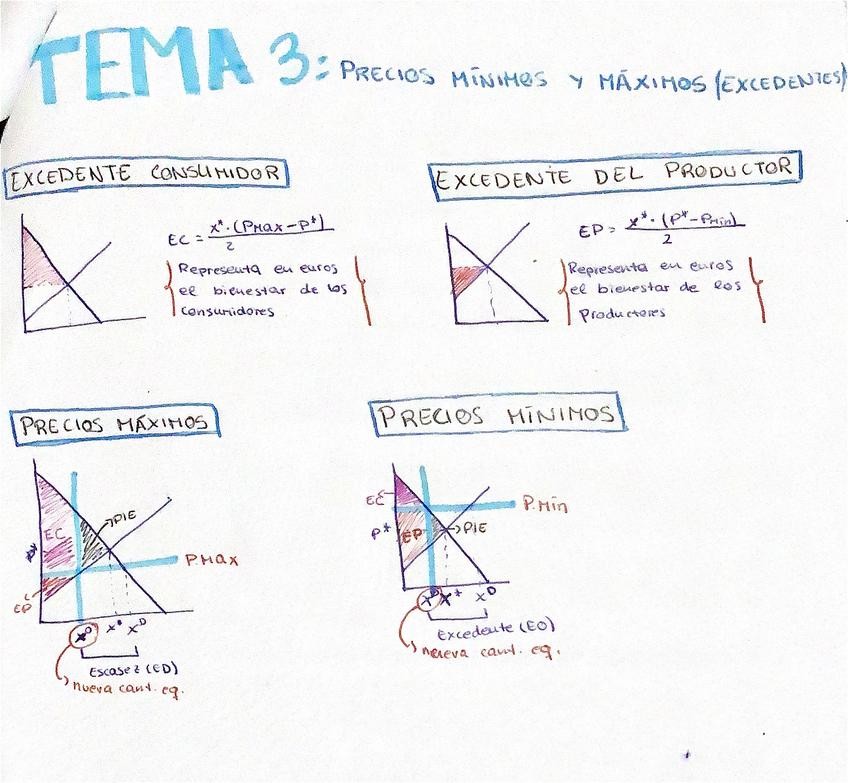 TEMA 3: PRECIOS MÍNIMOS Y MÁXIMOS (EXCEDENTES)
EXCEDENTE CONSUMIDOR
EC = x*·(PMax-P*)
2
Representa en euros
el bienestar de los
consumidores
EXCEDENTE DEL PRODUCTOR
EP = x*·(P*-PMin)
2
Representa en euros
el bienestar de los
Productores
PRECIOS MÁXIMOS
EC
PIE
P.Max
EP
x* x^D
Escasez (ED)
nueva cant. eq.
PRECIOS MÍNIMOS
EC
P.Min
P*
EP
PIE
x* x^D
Excedente (EO)
nueva cant. eq.